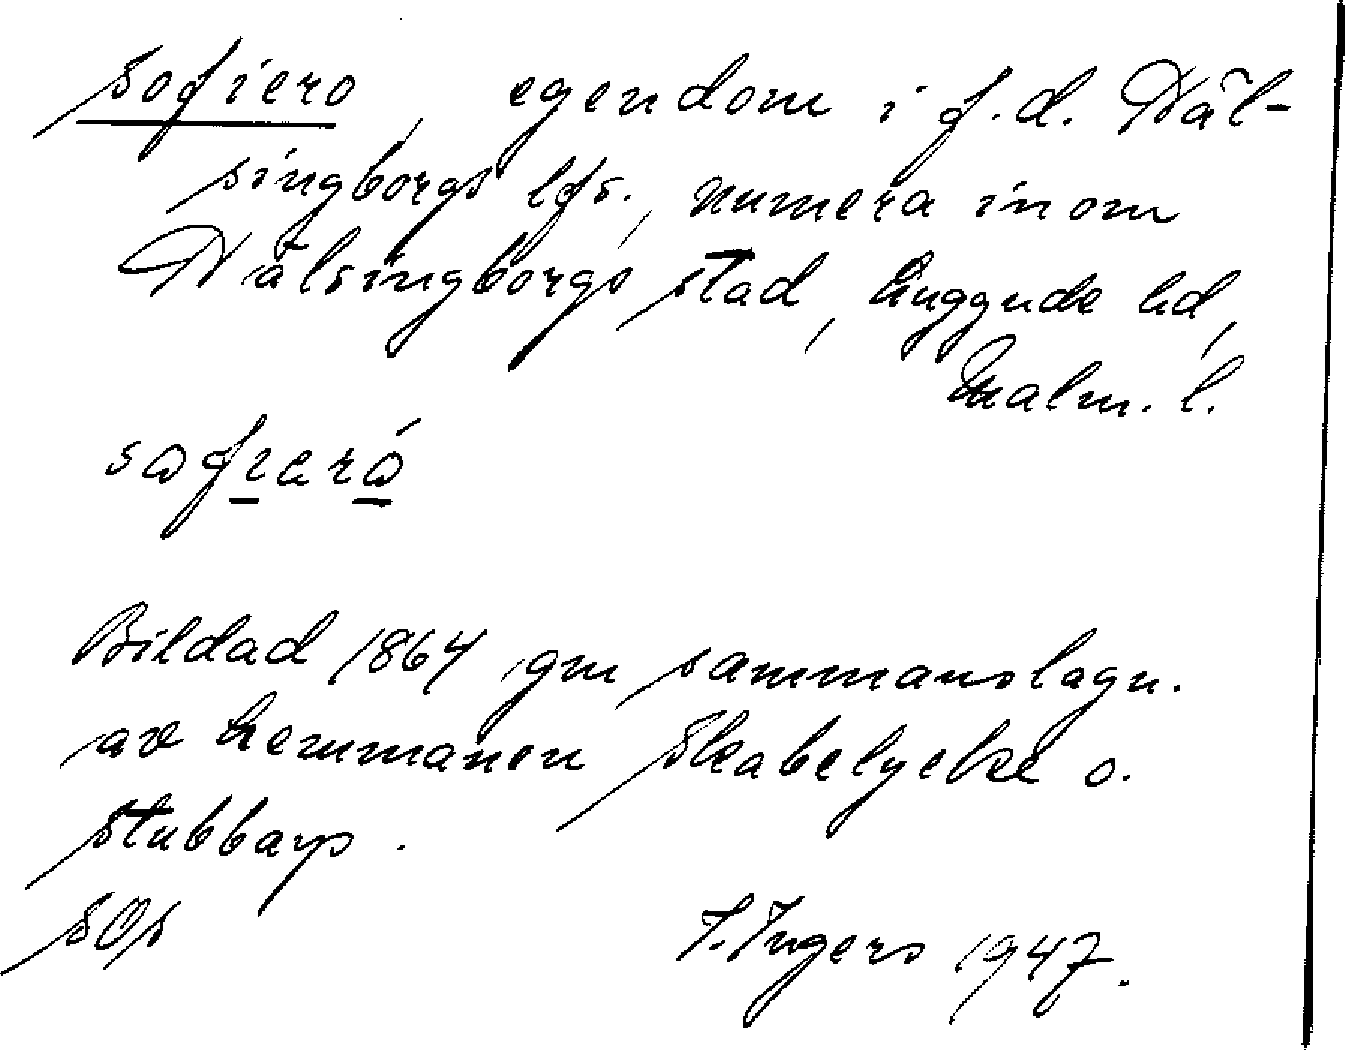 Sofiero, egendom i f.d. Häl-
singborgs lfs., numera inom
Hälsingborgs stad, Luggude hd,
Malm. l.
Bildad 1864 gm sammanslagn.
av hemmanen Skabelycke o.
Stubbarp.
SOS
I. Ingers 1947.